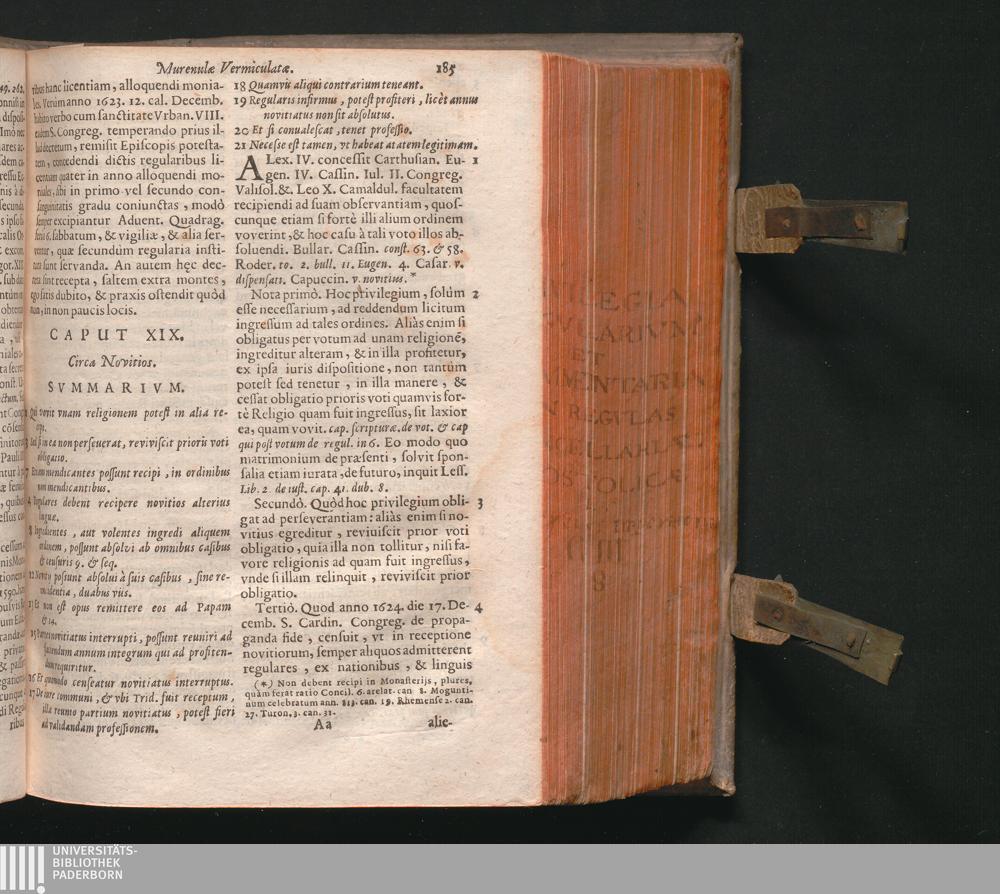 Murenulæ Vermiculatæ. 185
tibus hanc licentiam, alloquendi monia-
les. Verùm anno 1623. 12. cal. Decemb.
habito verbo cum sanctitate Vrban. VIII.
eadem S. Congreg. temperando prius il-
lud decretum, remisit Episcopis potesta-
tem, concedendi dictis regularibus li-
centiam quater in anno alloquendi mo-
niales, sibi in primo vel secundo con-
sanguinitatis gradu coniunctas, modò
semper excipiantur Aduent. Quadrag.
feria 6. sabbatum, & vigiliæ, & alia ser-
ventur, quæ secundùm regularia insti-
tuta sunt servanda. An autem hęc dec-
reta sint recepta, saltem extra montes,
ego satis dubito, & praxis ostendit quòd
non, in non paucis locis.
CAPUT XIX.
Circa Novitios.
SVMMARIVM.
Qui vovit vnam religionem potest in alia re-
cipi.
Sed si in ea non perseuerat, reviviscit prioris voti
obligatio.
Etiam mendicantes possunt recipi, in ordinibus
non mendicantibus.
4 Regulares debent recipere novitios alterius
linguæ.
8 Ingredientes, aut volentes ingredi aliquem
ordinem, possunt absolvi ab omnibus casibus
& censuris 9. & seq.
12 Novitij possunt absolui à suis casibus, sine re-
incidentia, duabus viis.
13 Et non est opus remittere eos ad Papam
& 14.
15 Partes novitiatus interrupti, possunt reuniri ad
faciendum annum integrum qui ad profiten-
dum requiritur.
16 Et quomodo censeatur novitiatus interruptus.
17 De iure communi, & vbi Trid. fuit receptum,
illa reunio partium novitiatus, potest fieri
ad validandam professionem.
18 Quamvis aliqui contrarium teneant.
19 Regularis infirmus, potest profiteri, licèt annus
novitiatus non sit absolutus.
20 Et si convalescat, tenet professio.
21 Necesse est tamen, vt habeat ætatem legitimam.
ALex. IV. concessit Carthusian. Eu- 1
gen. IV. Cassin. Iul. II. Congreg.
Valisol. &. Leo X. Camaldul. facultatem
recipiendi ad suam observantiam, quos-
cunque etiam si fortè illi alium ordinem
voverint, & hoc casu à tali voto illos ab-
soluendi. Bullar. Cassin. const. 63. & 58.
Roder. to. 2. bull. 11. Eugen. 4. Casar. v.
dispensati. Capuccin. v. novitius.*
Nota primò. Hoc privilegium, solùm 2
esse necessarium, ad reddendum licitum
ingressum ad tales ordines. Aliàs enim si
obligatus per votum ad unam religionẽ,
ingreditur alteram, & in illa profitetur,
ex ipsa iuris dispositione, non tantùm
potest sed tenetur, in illa manere, &
cessat obligatio prioris voti quamvis for-
tè Religio quam fuit ingressus, sit laxior
ea, quam vovit. cap. scripturæ. de vot. & cap
qui post votum de regul. in 6. Eo modo quo
matrimonium de præsenti, solvit spon-
salia etiam iurata, de futuro, inquit Less.
Lib. 2 de iust. cap. 41. dub. 8.
Secundò. Quòd hoc privilegium obli- 3
gat ad perseverantiam: aliàs enim si no-
vitius egreditur, reviuiscit prior voti
obligatio, quia illa non tollitur, nisi fa-
vore religionis ad quam fuit ingressus,
vnde si illam relinquit, reviviscit prior
obligatio.
Tertiò. Quod anno 1624. die 17. De- 4
cemb. S. Cardin. Congreg. de propa-
ganda fide, censuit, vt in receptione
novitiorum, semper aliquos admitterent
regulares, ex nationibus, & linguis
(*) Non debent recipi in Monasterijs, plures,
quàm ferat ratio Concil. 6. arelat. can 8. Mogunti-
num celebratum ann. 813. can. 19. Rhemense 2. can.
27. Turon. 3. can. 31.
Aa alie-
ET
REGVLAS
8
UNIVERSITÄTS-
BIBLIOTHEK
PADERBORN